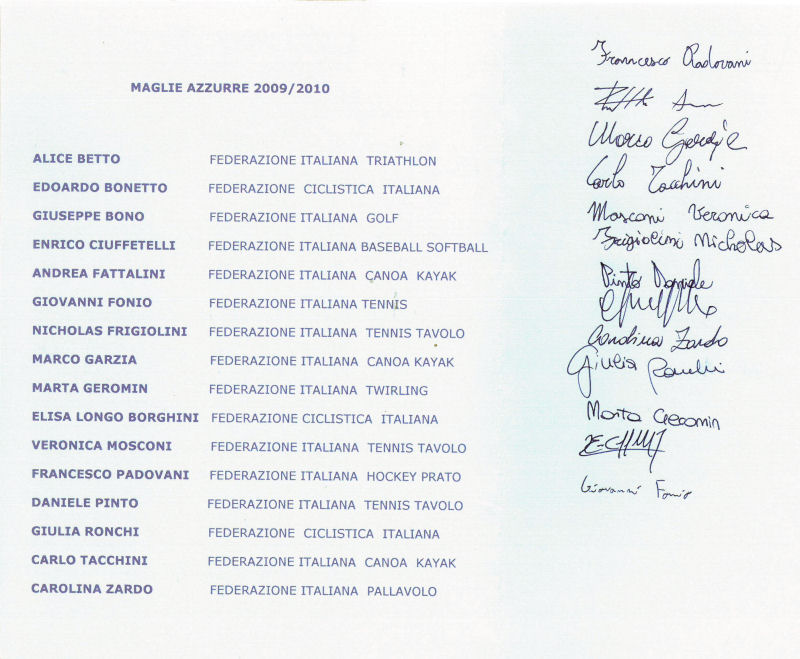 MAGLIE AZZURRE 2009/2010
ALICE BETTO FEDERAZIONE ITALIANA TRIATHLON
EDOARDO BONETTO FEDERAZIONE CICLISTICA ITALIANA
GIUSEPPE BONO FEDERAZIONE ITALIANA GOLF
ENRICO CIUFFETELLI FEDERAZIONE ITALIANA BASEBALL SOFTBALL
ANDREA FATTALINI FEDERAZIONE ITALIANA CANOA KAYAK
GIOVANNI FONIO FEDERAZIONE ITALIANA TENNIS
NICHOLAS FRIGIOLINI FEDERAZIONE ITALIANA TENNIS TAVOLO
MARCO GARZIA FEDERAZIONE ITALIANA CANOA KAYAK
MARTA GEROMIN FEDERAZIONE ITALIANA TWIRLING
ELISA LONGO BORGHINI FEDERAZIONE CICLISTICA ITALIANA
VERONICA MOSCONI FEDERAZIONE ITALIANA TENNIS TAVOLO
FRANCESCO PADOVANI FEDERAZIONE ITALIANA HOCKEY PRATO
DANIELE PINTO FEDERAZIONE ITALIANA TENNIS TAVOLO
GIULIA RONCHI FEDERAZIONE CICLISTICA ITALIANA
CARLO TACCHINI FEDERAZIONE ITALIANA CANOA KAYAK
CAROLINA ZARDO FEDERAZIONE ITALIANA PALLAVOLO
Francesco Padovani
Marco Garzia
Carlo Tacchini
Mosconi Veronica
Frigiolini Nicholas
Pinto Daniele
Carolina Zardo
Giulia Ronchi
Marta Geromin
Giovanni Fonio